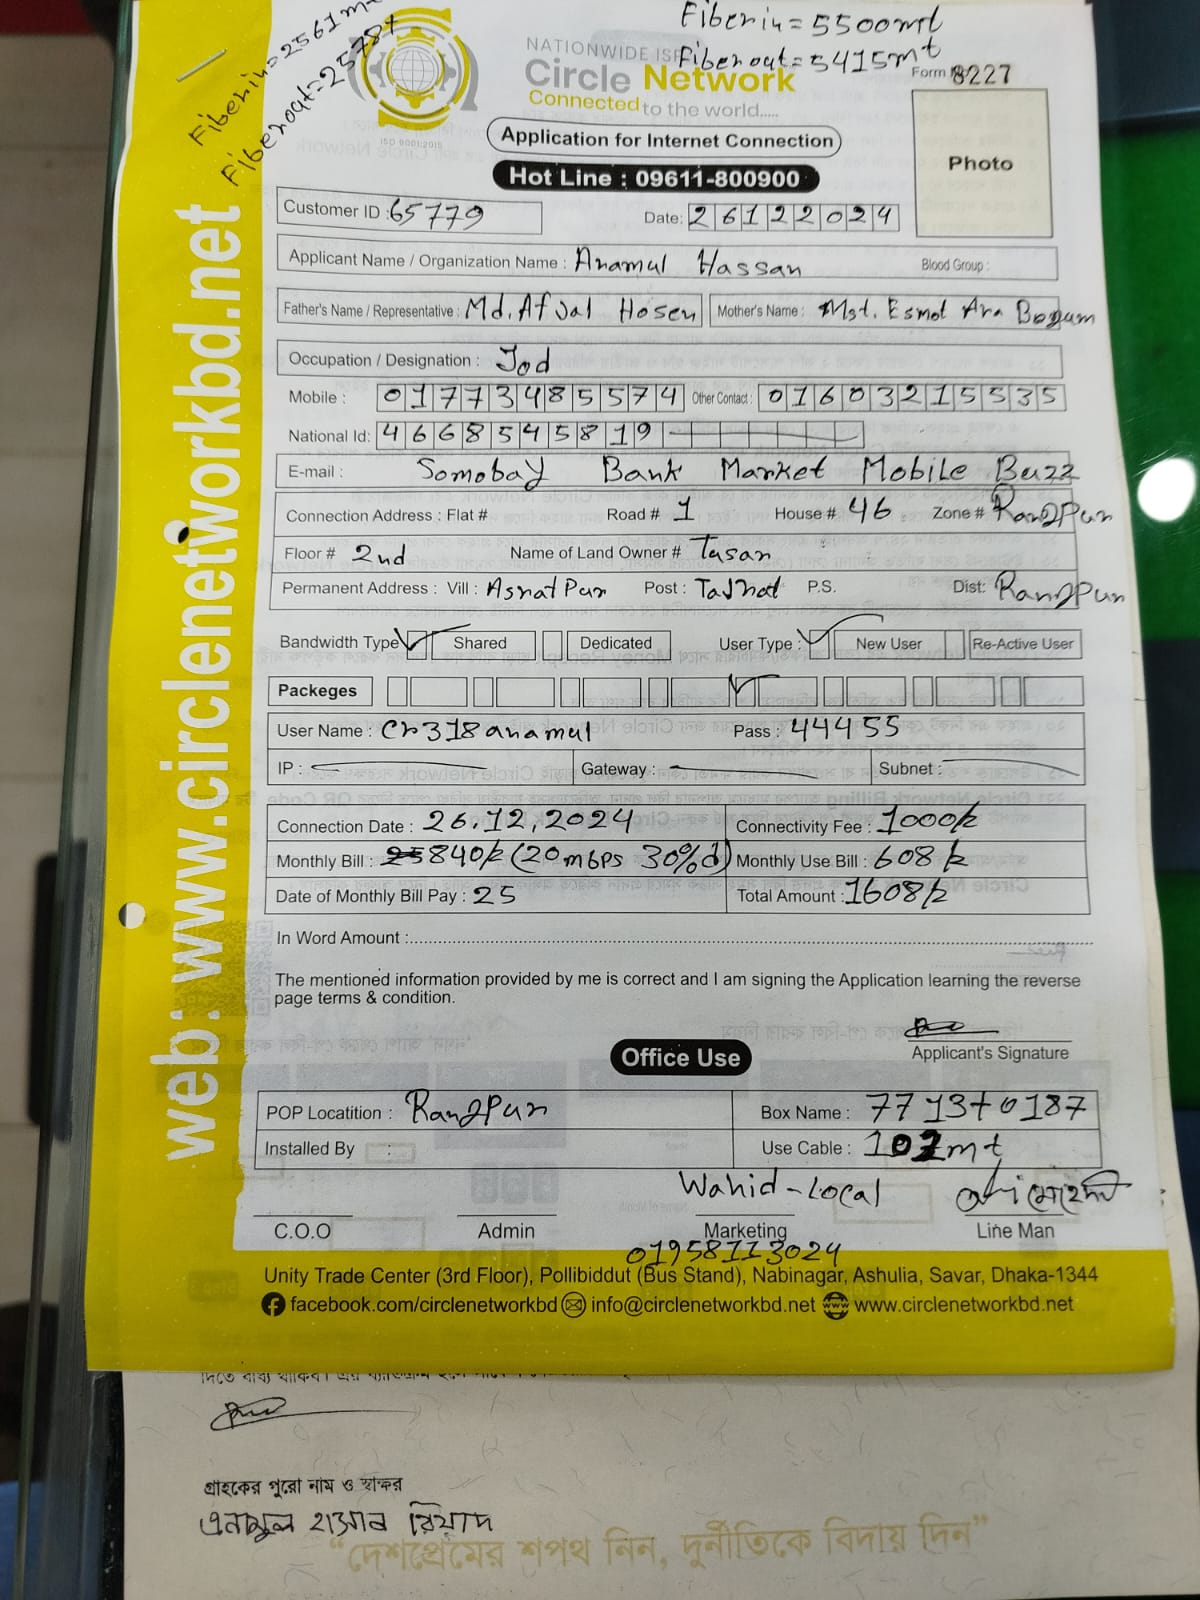 Fiber in=2561mt
Fiber out=2578+
Fiber in=5500mt
Fiber out=5415mt
NATIONWIDE ISP
Circle Network
Connected to the world.....
ISO 9001:2015
Form 8227
Application for Internet Connection
Photo
Hot Line : 09611-800900
Customer ID : 65779
Date: 26122024
Applicant Name / Organization Name : Anamul Hassan
Blood Group :
Father's Name / Representative : Md. Afjal Hosen
Mother's Name : Mst. Esmot Ara Begum
Occupation / Designation : Job
Mobile : 01773485574
Other Contact : 01603215535
National Id: 4668545819
E-mail : Somobay Bank Market Mobile Buzz
Connection Address : Flat # Road # 1 House # 46 Zone # Rangpur
Floor # 2nd Name of Land Owner # Tasan
Permanent Address : Vill : Asratpur Post : Tajhat P.S. Dist: Rangpur
Bandwidth Type Shared Dedicated User Type : New User Re-Active User
Packeges
User Name : cr318anamul Pass : 44455
IP : Gateway : Subnet :
Connection Date : 26.12.2024 Connectivity Fee : 1000/k
Monthly Bill : 840/k (20mbps 30%d) Monthly Use Bill : 608/k
Date of Monthly Bill Pay : 25 Total Amount : 1608/k
In Word Amount :
The mentioned information provided by me is correct and I am signing the Application learning the reverse
page terms & condition.
Applicant's Signature
Office Use
POP Locatition : Rangpur Box Name : 771370187
Installed By : Use Cable : 102mt
Wahid-Local
C.O.O Admin Marketing Line Man
01958113024
Unity Trade Center (3rd Floor), Pollibiddut (Bus Stand), Nabinagar, Ashulia, Savar, Dhaka-1344
facebook.com/circlenetworkbd info@circlenetworkbd.net www.circlenetworkbd.net
web: www.circlenetworkbd.net
গ্রাহকের পুরো নাম ও স্বাক্ষর
এনামুল হাসান রিয়াদ
“দেশপ্রেমের শপথ নিন, দুর্নীতিকে বিদায় দিন”